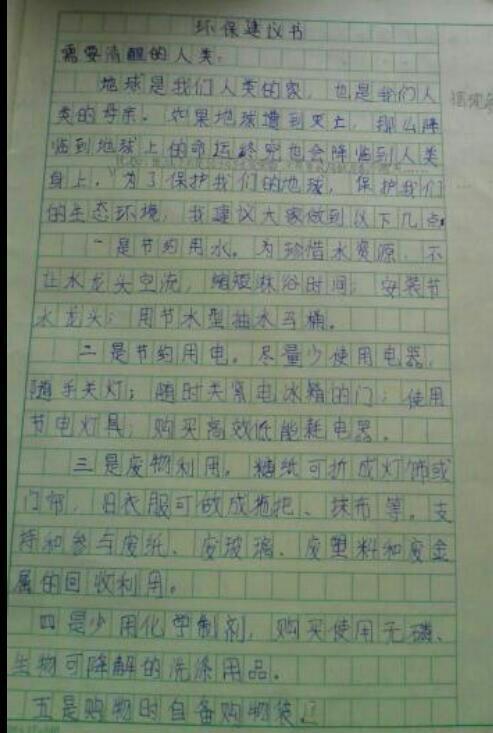 环保建议书
需要清醒的人类：
地球是我们人类的家，也是我们人
类的母亲。如果地球遭到灭亡，那么降
临到地球上的命运终究也会降临到人类
身上。为了保护我们的地球，保护我们
的生态环境，我建议大家做到以下几点
一是节约用水。为珍惜水资源，不
让水龙头空流，缩短淋浴时间；安装节
水龙头；用节水型抽水马桶。
二是节约用电。尽量少使用电器，
随手关灯；随时关紧电冰箱的门；使用
节电灯具；购买高效低能耗电器。
三是废物利用。糖纸可折成灯饰或
门帘，旧衣服可做成拖把、抹布等。支
持和参与废纸、废玻璃、废塑料和废金
属的回收利用。
四是少用化学制剂，购买使用无磷、
生物可降解的洗涤用品。
五是购物时自备购物袋。